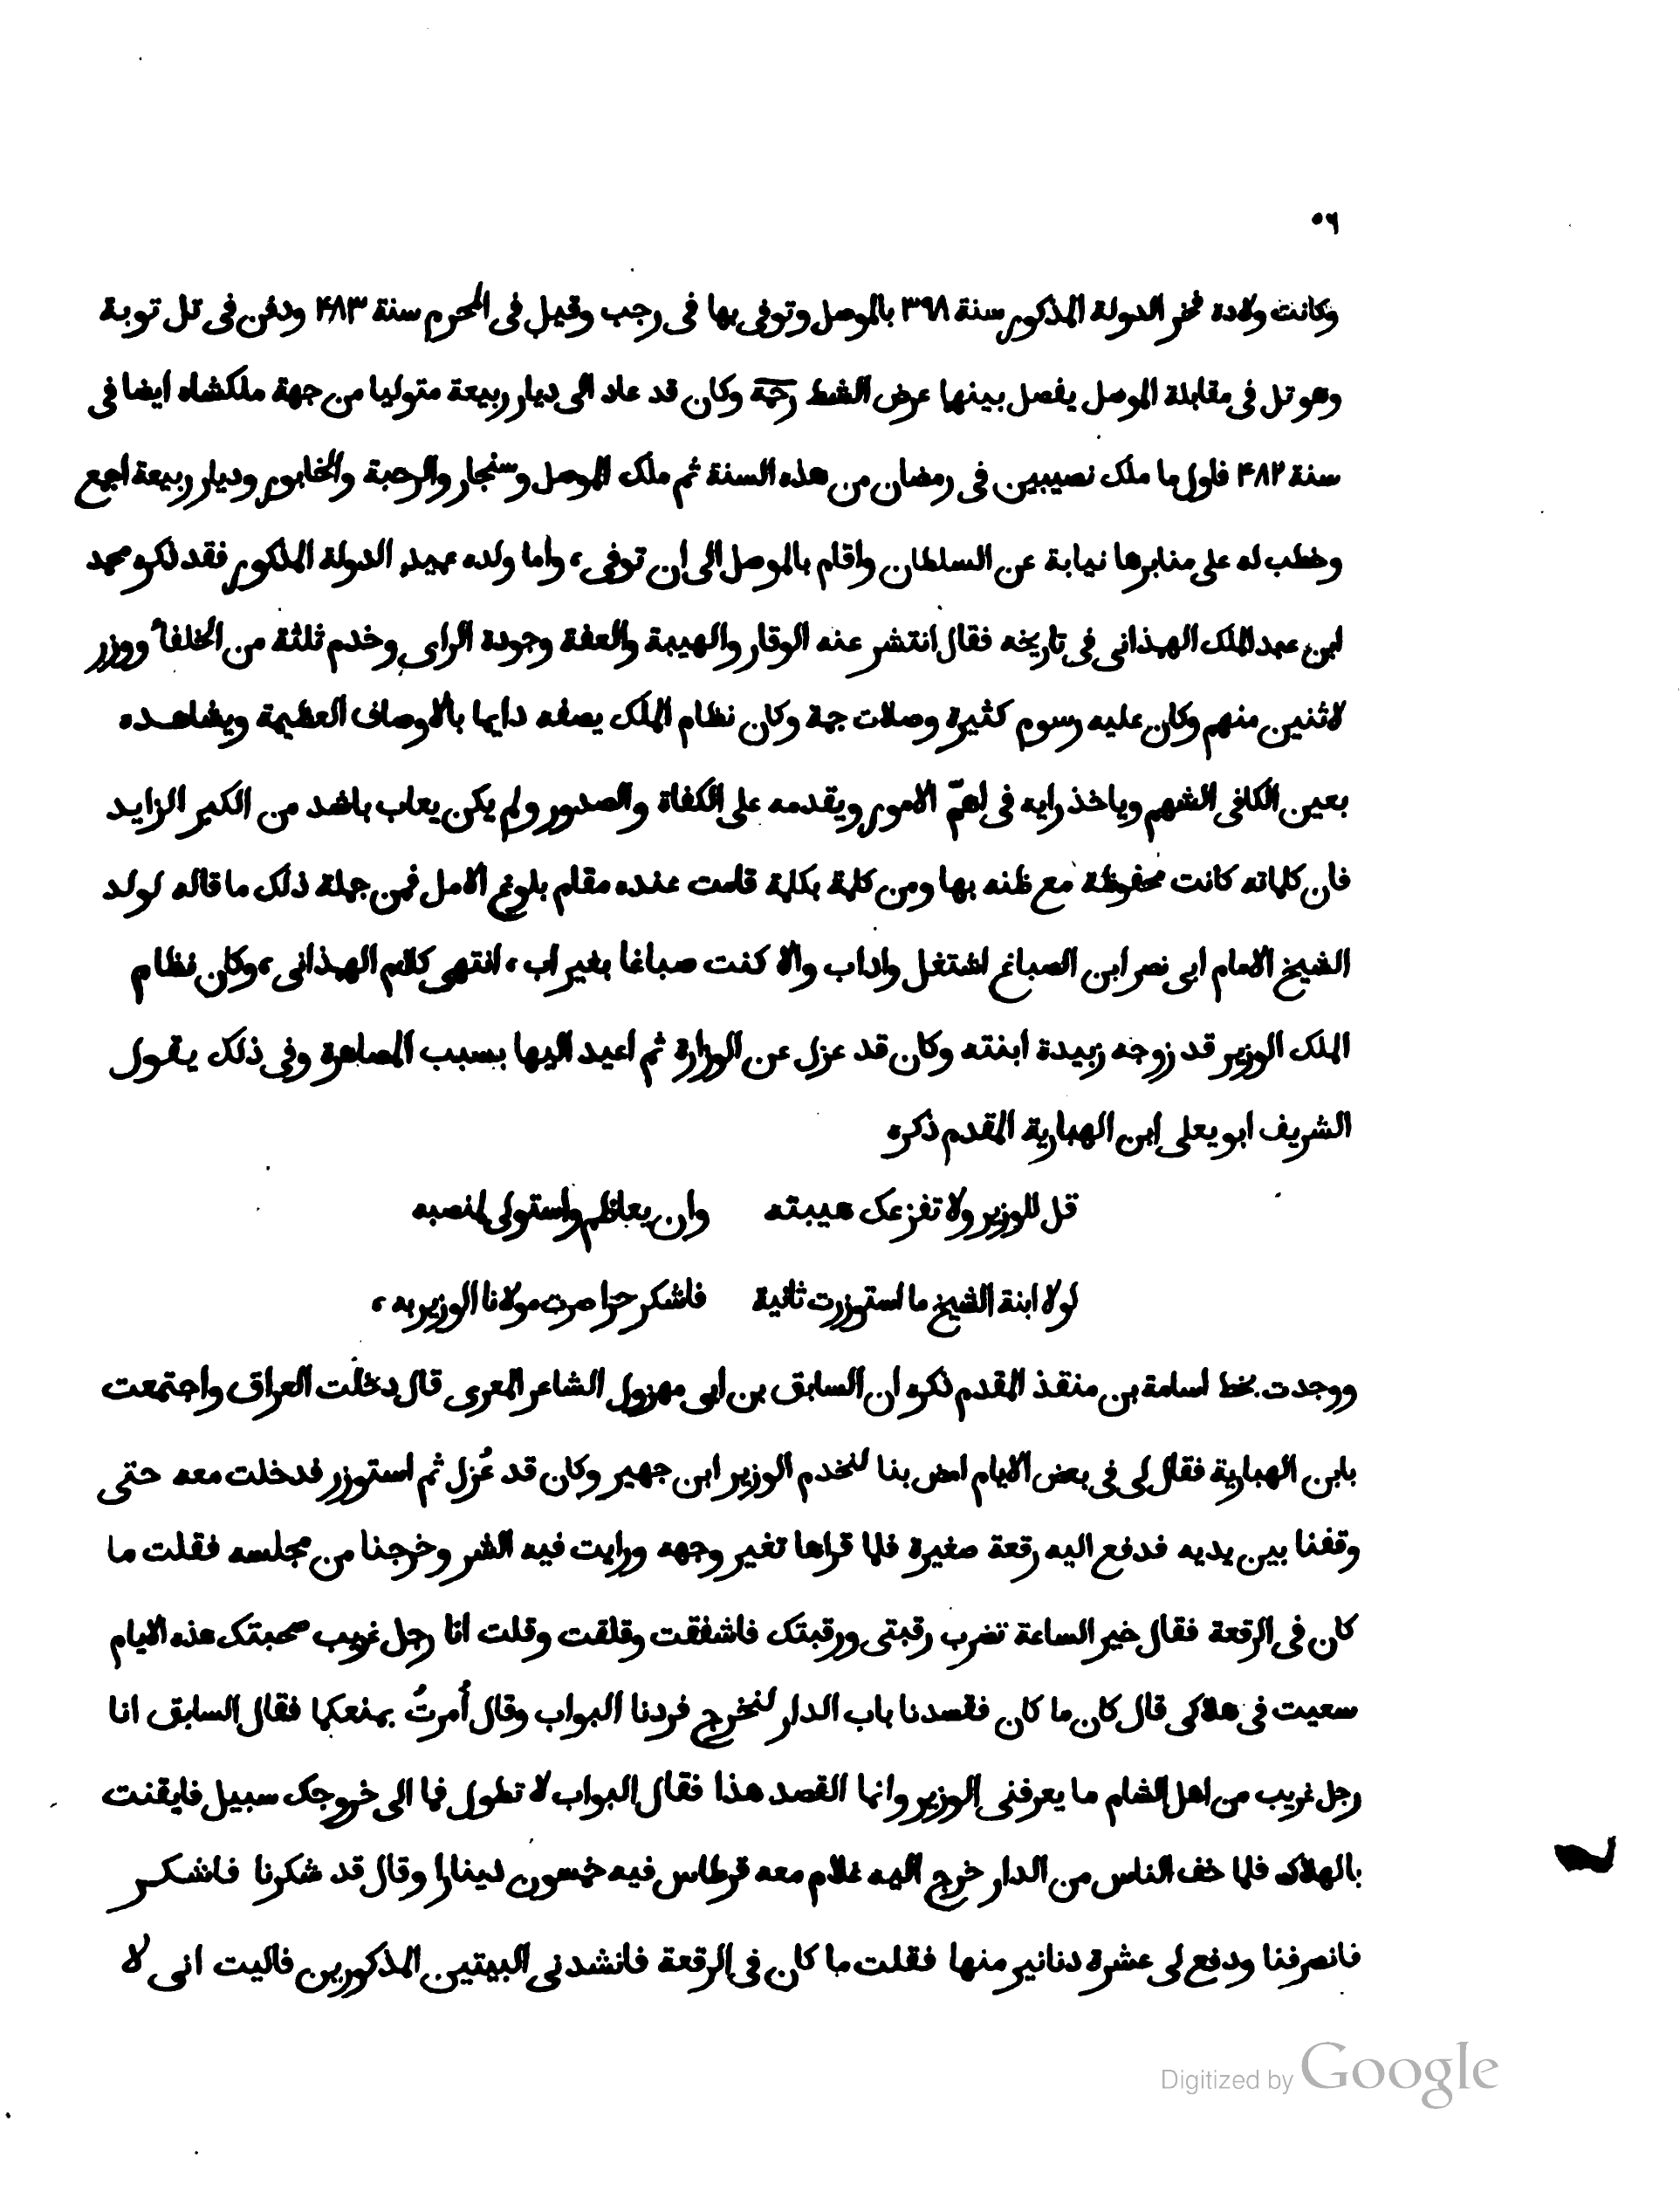 ٥٦
وكانت ولادة فخر الدولة المذكور سنة ٣٩٨ بالموصل وتوفى بها فى رجب وقيل فى المحرم سنة ۴٨٣ ودفن فى تل توبة
وهو تل فى مقابلة الموصل يفصل بينها عرض الشط رحمة وكان قد عاد الى ديار ربيعة متوليا من جهة ملكشاه ايضا فى
سنة ۴٨٢ فاول ما ملك نصيبين فى رمضان من هذه السنة ثم ملك الموصل وسنجار والرحبة والخابور وديار ربيعة اجمع
وخطب له على منابرها نيابة عن السلطان واقام بالموصل الى ان توفى، واما ولده عميد الدولة المذكور فقد ذكره محمد
ابن عبد الملك الهمذانى فى تاريخه فقال انتشر عنه الوقار والهيبة والعفة وجودة الراى وخدم ثلثة من الخلفاء ووزر
لاثنين منهم وكان عليه رسوم كثيرة وصلات جمة وكان نظام الملك يصفه دايما بالاوصاف العظيمة ويشاهده
بعين الكافى الشهم وياخذ رايه فى اهمّ الامور ويقدمه على الكفاة والصدور ولم يكن يعاب باشد من الكبر الزايد
فان كلماته كانت محفوظة مع ظنه بها ومن كلمة بكلمة قامت عنده مقام بلوغ الامل فمن جملة ذلك ما قاله لولد
الشيخ الامام ابى نصر ابن الصباغ اشتغل واداب والا كنت صباغا بغير اب، انتهى كلام الهمذانى، وكان نظام
الملك الوزير قد زوجه زبيدة ابنته وكان قد عزل عن الوزارة ثم اعيد اليها بسبب المصاهرة وفى ذلك يقول
الشريف ابو يعلى ابن الهبارية المقدم ذكره
قل للوزير ولا تفزعك هيبته وان يعاظم واستولى لمنصبه
لولا ابنة الشيخ ما استوزرت ثانية فاشكر حرا صرت مولانا الوزير به،
ووجدت بخط اسامة بن منقذ المقدم ذكره ان السابق بن ابى مهزول الشاعر المعرى قال دخلت العراق واجتمعت
بابن الهبارية فقال لى فى بعض الايام امض بنا لنخدم الوزير ابن جهير وكان قد عُزل ثم استوزر فدخلت معه حتى
وقفنا بين يديه فدفع اليه رقعة صغيرة فلما قراها تغير وجهه ورايت فيه الشر وخرجنا من مجلسه فقلت ما
كان فى الرقعة فقال خير الساعة تضرب رقبتى ورقبتك فاشفقت وقلقت وقلت انا رجل غريب صحبتك هذه الايام
سعيت فى هلاكى قال كان ما كان فقصدنا باب الدار لنخرج فردنا البواب وقال اُمرتُ بمنعكما فقال السابق انا
رجل غريب من اهل الشام ما يعرفنى الوزير وانما القصد هذا فقال البواب لا تطول فما الى خروجك سبيل فايقنت
بالهلاك فلما خف الناس من الدار خرج اليه غلام معه قرطاس فيه خمسون دينارا وقال قد شكرنا فاشكر
فانصرفنا ودفع لى عشرة دنانير منها فقلت ما كان فى الرقعة فانشدنى البيتين المذكورين فاليت انى لا
Digitized by Google